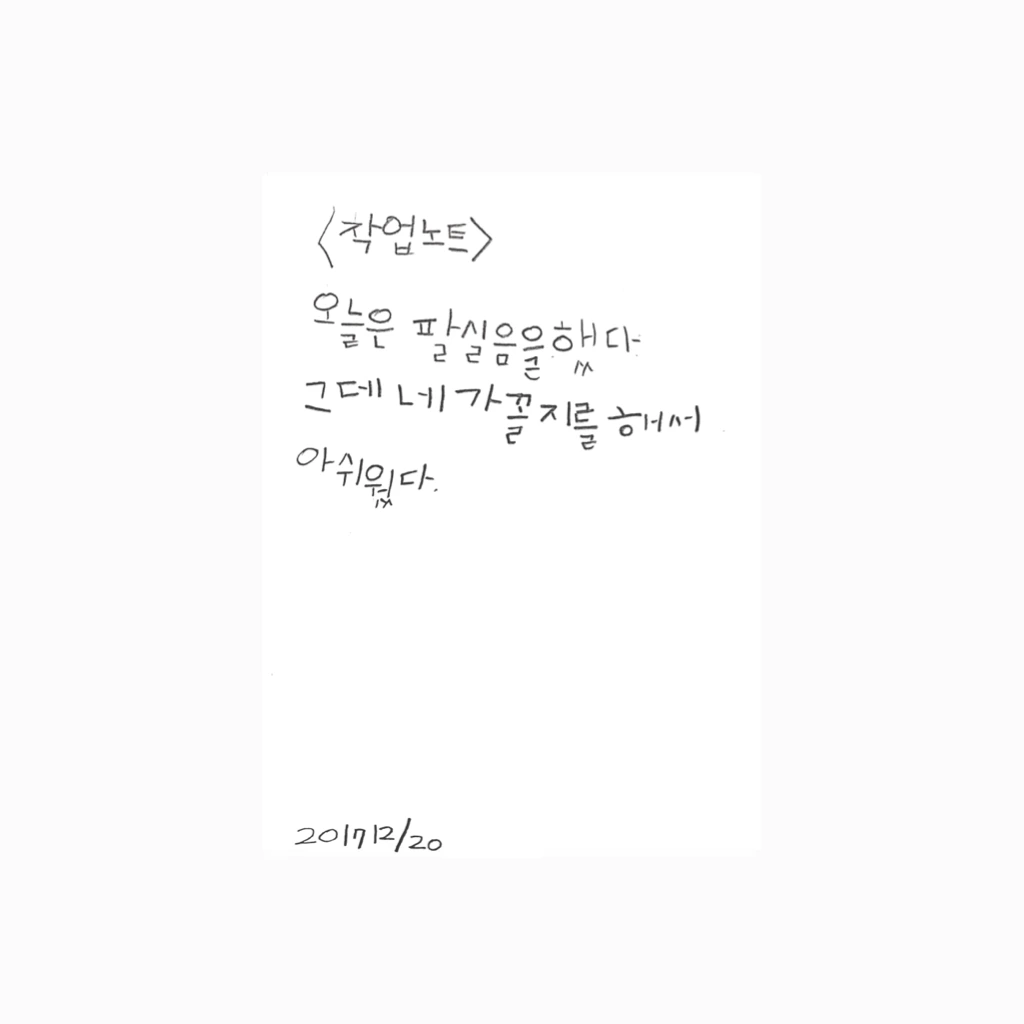 <작업노트>
오늘은 팔실음을했다
그데 네가꼴지를 해서
아쉬웠다.
201712/20